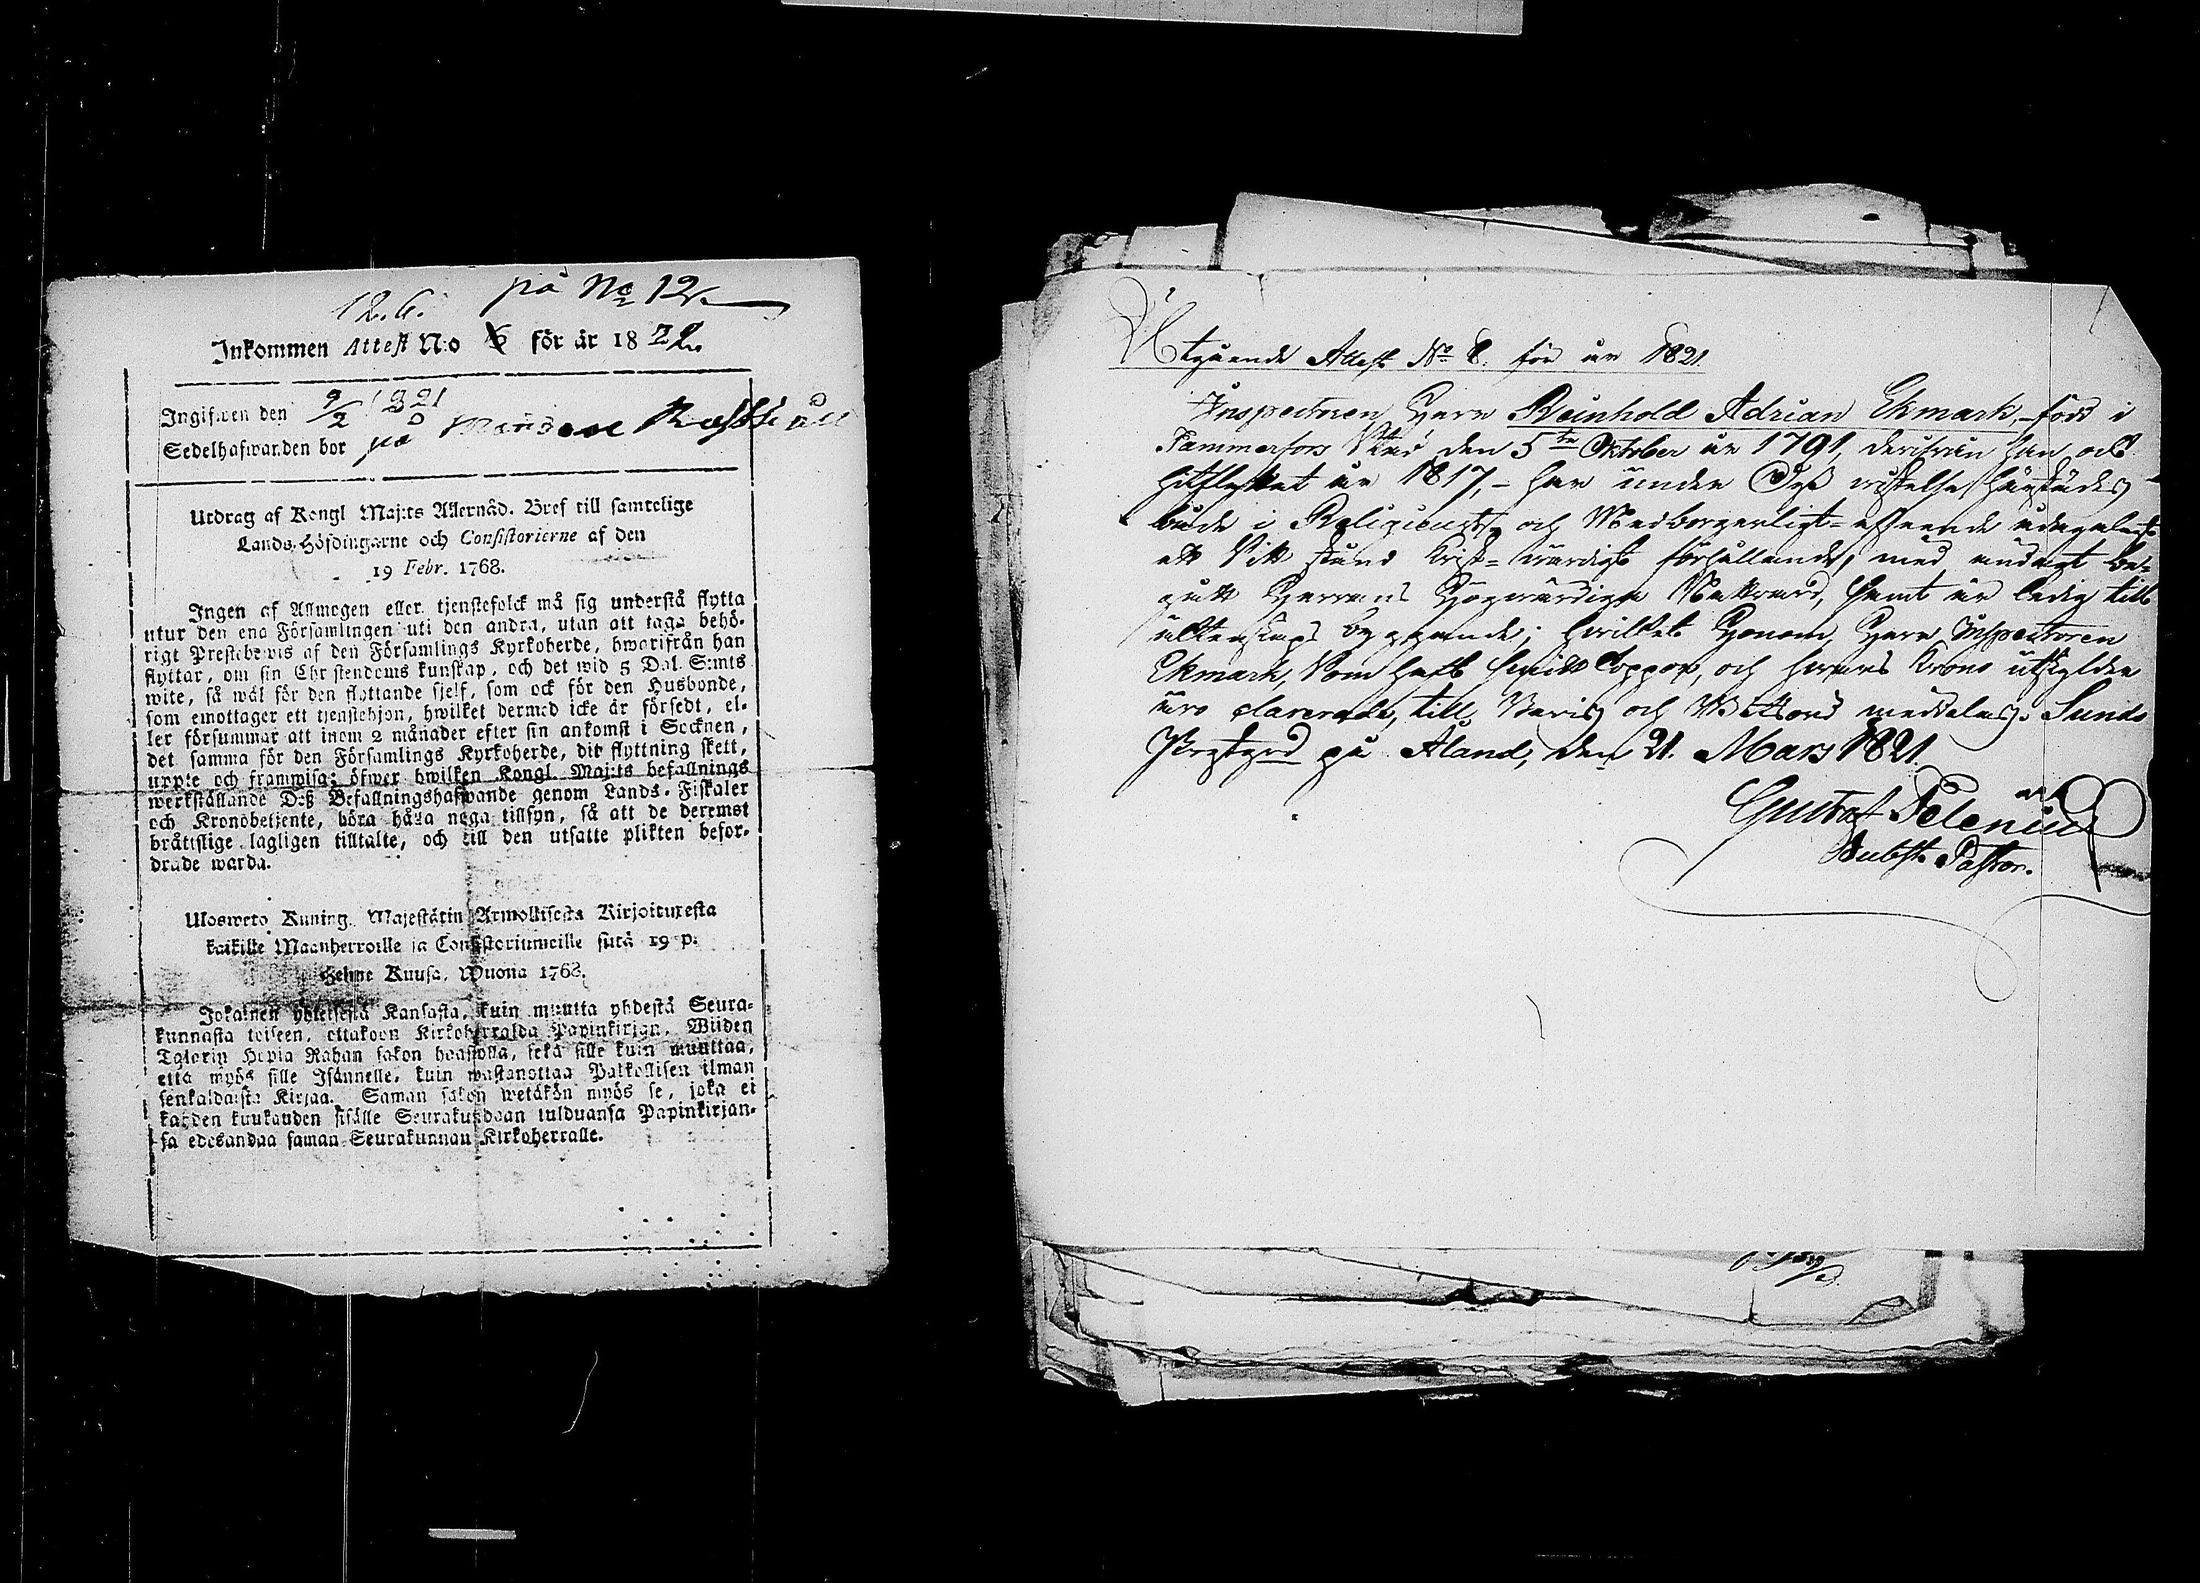 12.6. på No 12.
Inkommen Attest N:o 6 för år 1822.
Ingifwen den 9/2 1821
Sedelhafwanden bor på
Utdrag af Kongl Maj:ts Allernåd. Bref till samtelige
Lands-Höfdingarne och Consistorierne af den
19 Febr. 1768.
Ingen af Allmogen eller tjenstefolck må sig understå flytta
utur den ena Församlingen uti den andra, utan att taga behö-
rigt Prestebewis af den Församlings Kyrkoherde, hwarifrån han
flyttar, om sin Christendoms kunskap, och det wid 5 Dal. S:mts
wite, så wäl för den flyttande sjelf, som ock för den Husbonde,
som emottager ett tjenstehjon, hwilket dermed icke är försedt, el-
ler försummar att inom 2 månader efter sin ankomst i Socknen,
det samma för den Församlings Kyrkoherde, dit flyttning skett,
uppte och framwisa; öfwer hwilken Kongl. Maj:ts befallnings
werkställande Deß Befallningshafwande genom Lands-Fiskaler
och Kronobetjente, böra hålla noga tillsyn, så att de deremot
bråttslige lagligen tilltalte, och till den utsatte plikten befor-
drade warda.
Ulosweto Kuning. Majestätin Armollisesta Kirjoituxesta
kaikille Maanherroille ja Consistoriumeille siitä 19 p.
Helme Kuusa, Wuona 1768.
Jokainen yhteisestä Kansasta, kuin muutta yhdestä Seura-
kunnasta toiseen, ottakoon Kirkoherralda Papinkirjan, Wiiden
Talorin Hopia Rahan sakon haastolla, sekä sille kuin muuttaa,
että myös sille Isännelle, kuin wastanottaa Palkollisen ilman
senkaldaista Kirjaa. Saman sakon wetäkön myös se, joka ei
kahden kuukauden sisälle Seurakundaan tulduansa Papinkirjan-
sa edesandaa saman Seurakunnan Kirkoherralle.
Utgående Attest No 8. för år 1821.
Inspectoren Herr Reinhold Adrian Ekmark, – född i
Tammerfors Stad den 5te Oktober år 1791, derifrån han ock
hitflyttat år 1817, – har under Deß vistelse härstädes
både i Religions och Medborgerligt afseende ådagalagt
ett Sitt stånd Krist-värdigt förhållande, med andagt be-
gått Herrans Högvärdiga Nattvard, samt är ledig till
äktenskaps byggande; hvilket Honom, Herr Inspectoren
Ekmark, som haft Koppor, och hvars Krono utskylder
äro clarerade, till Bevis och meddelas. Sunds
Prestgård på Åland, den 21. Mars 1821.
Gustaf Pelenius
Subst. Pastor.